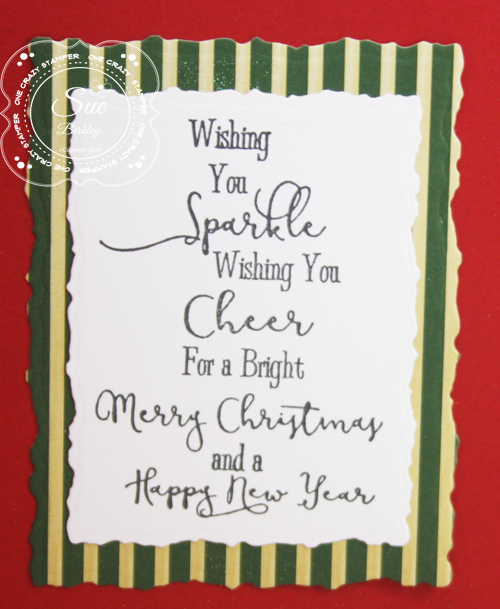 ONE CRAZY STAMPER ONE CRAZY STAMPER ONE CRAZY STAMPER
Sue
Berkley
Wishing
You
Sparkle
Wishing You
Cheer
For a Bright
Merry Christmas
and a
Happy New Year